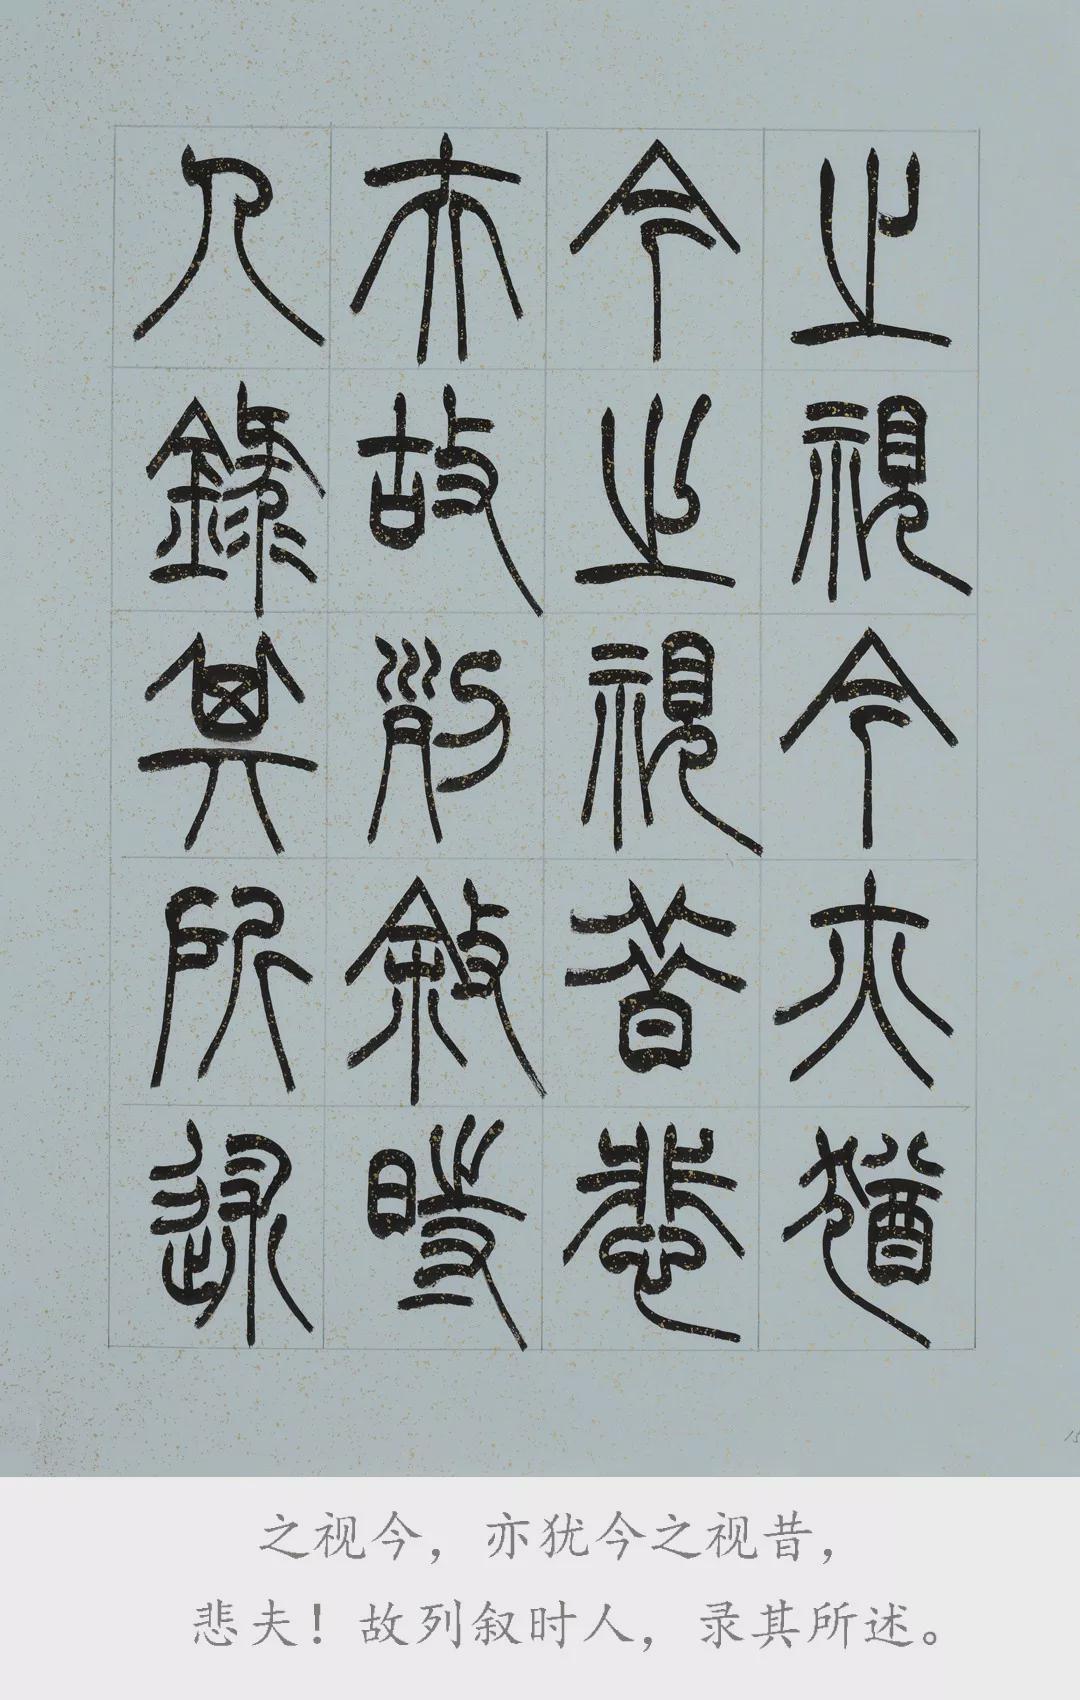 之視今亦猶
今之視昔悲
夫故列敘時
人錄其所述
15
之视今，亦犹今之视昔，
悲夫！故列叙时人，录其所述。